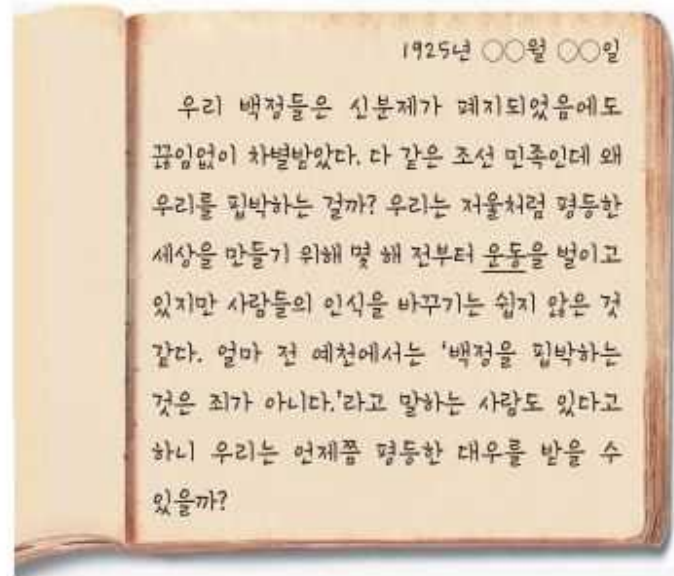 1925년 ○○월 ○○일
우리 백정들은 신분제가 폐지되었음에도
끊임없이 차별받았다. 다 같은 조선 민족인데 왜
우리를 핍박하는 걸까? 우리는 저울처럼 평등한
세상을 만들기 위해 몇 해 전부터 운동을 벌이고
있지만 사람들의 인식을 바꾸기는 쉽지 않은 것
같다. 얼마 전 예천에서는 '백정을 핍박하는
것은 죄가 아니다.'라고 말하는 사람도 있다고
하니 우리는 언제쯤 평등한 대우를 받을 수
있을까?